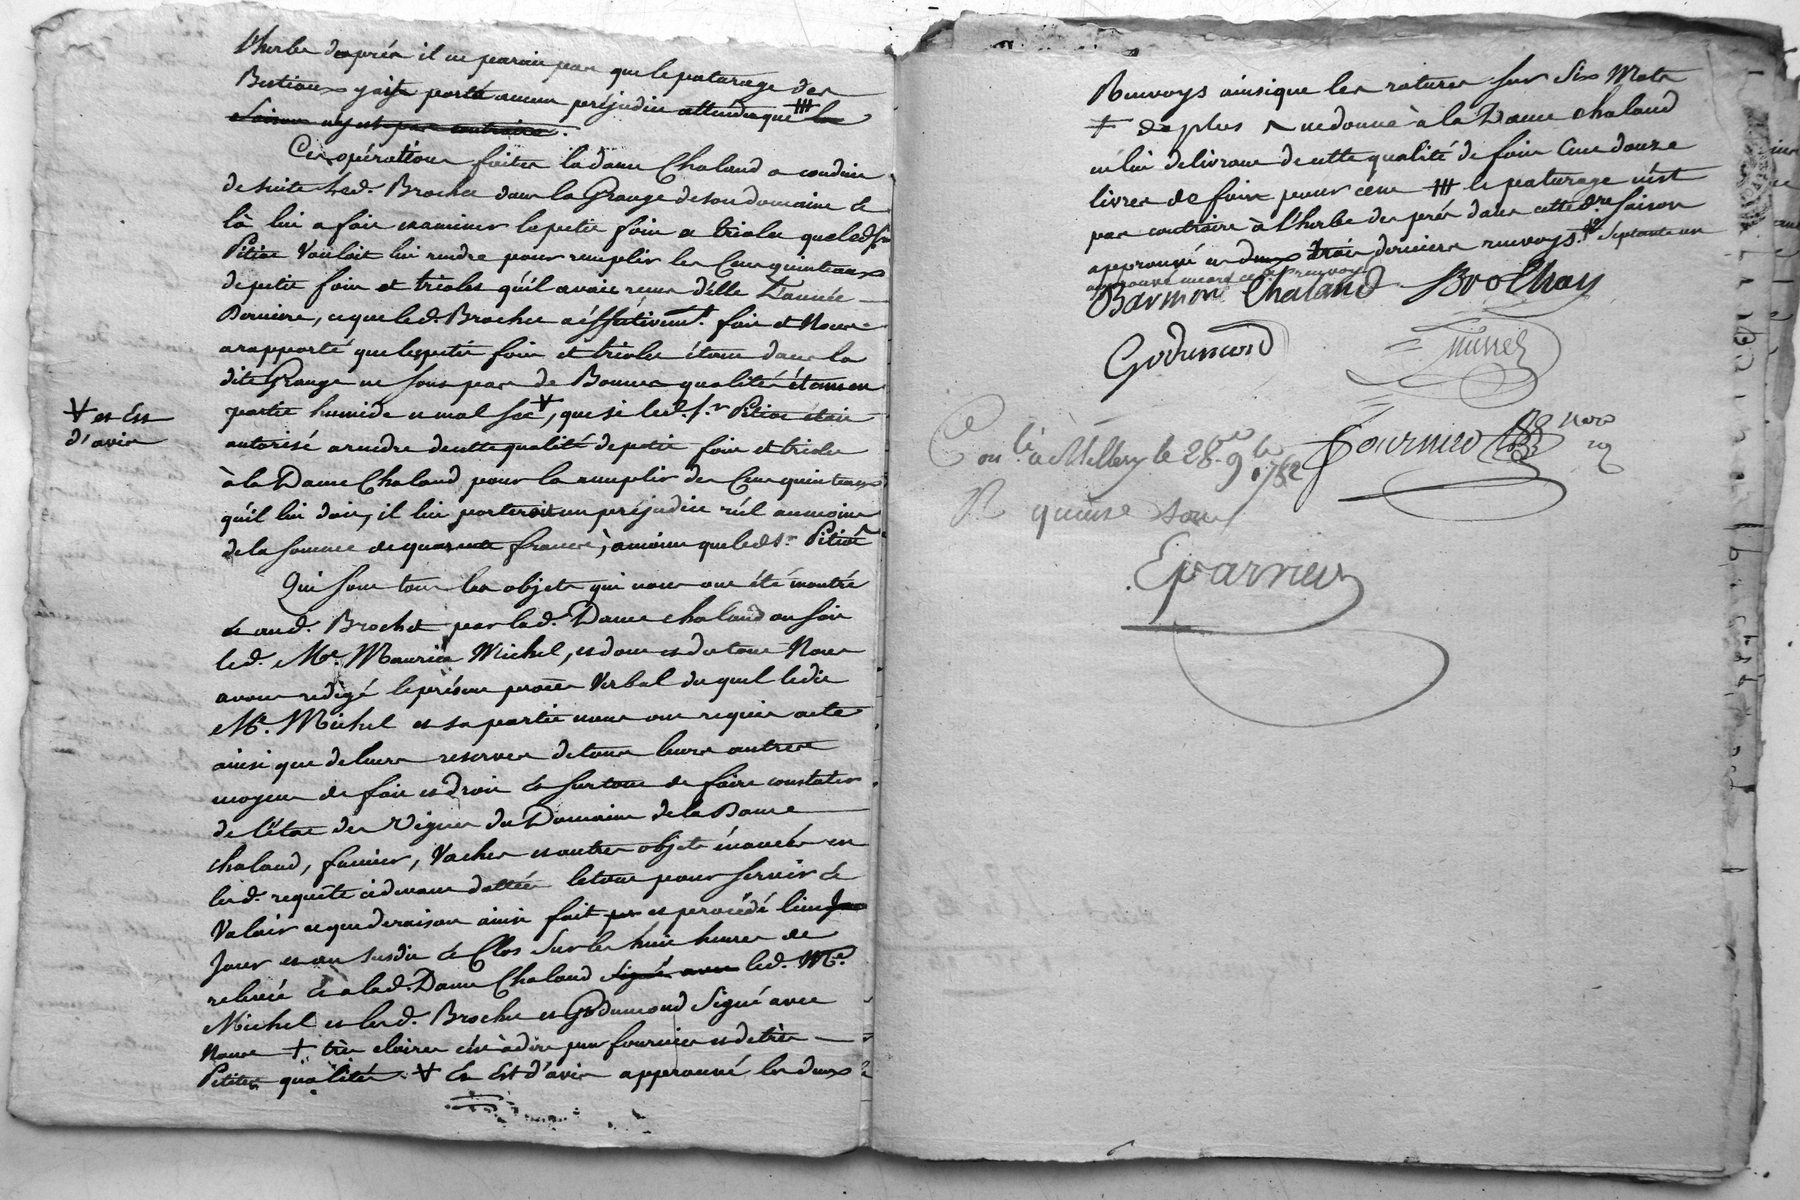 l'herbe des prés il ne parait pas que le paturage des
Bestiaux y aist porté aucun préjudice attendu que ^# les
Saison n'y est pas contraire.
Ces opérations faites la dame Chaland a conduit
de suite led. Brochet dans la Grange de son domaine et
là lui a fait examiner le petit foin et trioles que led. Sr
Pitiot Vouloit lui rendre pour remplir les Cinq quintaux
de petit foin et trioles qu'il avait reçus d'elle L'année
Derniere, ce que led. Brochet a éffectivemt. fait et Nous
a rapporté que le petit foin et trioles étant dans la
dite Grange ne sont pas de Bonnes qualités étant en
partie humide et mal sec V, que si led. Sr. Pitiot étoit
autorisé a rendre de cette qualité de petit foin et trioles
à la Dame Chaland pour la remplir des Cinq quintaux
qu'il lui doit, il lui porteroit un préjudice réel au moins
de la somme de quarante francs, a moins que led. Sr. Pitiot
V et Est
d'avis
Qui sont tous les objets qui nous ont été montré
et aud. Brochet par lad. Dame chaland ou soit
led. Me. Maurice Michel, et dont et du tout Nous
avons redigé le présent procès Verbal du quel ledit
Me. Michel et sa partie nous ont requis acte
ainsi que de leurs reserves de tous leurs autres
moyens de fait et droit et surtout de faire constater
de l'état des Vignes du Domaine de la Dame
chaland, fumier, Vaches et autres objets énoncés en
lad. requête cidevant dattée le tout pour servir et
Valoir ce que de raison ainsi fait par et procédé lieu Jou
Jour et an susdit et Clos Sur les huit heures de
relevée et a lad. Dame Chaland signé avec led. Me.
Michel et led. Brochet et Godemond Signé avec
Nous + très claires c'est à dire peu fournies et de très
Petites qualités. V Et Est d'avis approuvé les deux
Renvoys ainsi que les ratures sur Six Mots
+ de plus ne donne à la Dame Chaland
en lui delivrant de cette qualité de foin Cent douze
livres de foin pour cent # le paturage n'est
pas contraire à l'herbe des prés dans cette dre. saison
approuvé en deux trois derniers renvoys.
Chaland Brochay
Godemond
Conlé. à Millery le 28e. 9bre 1782
R quinze sous
Eparvier